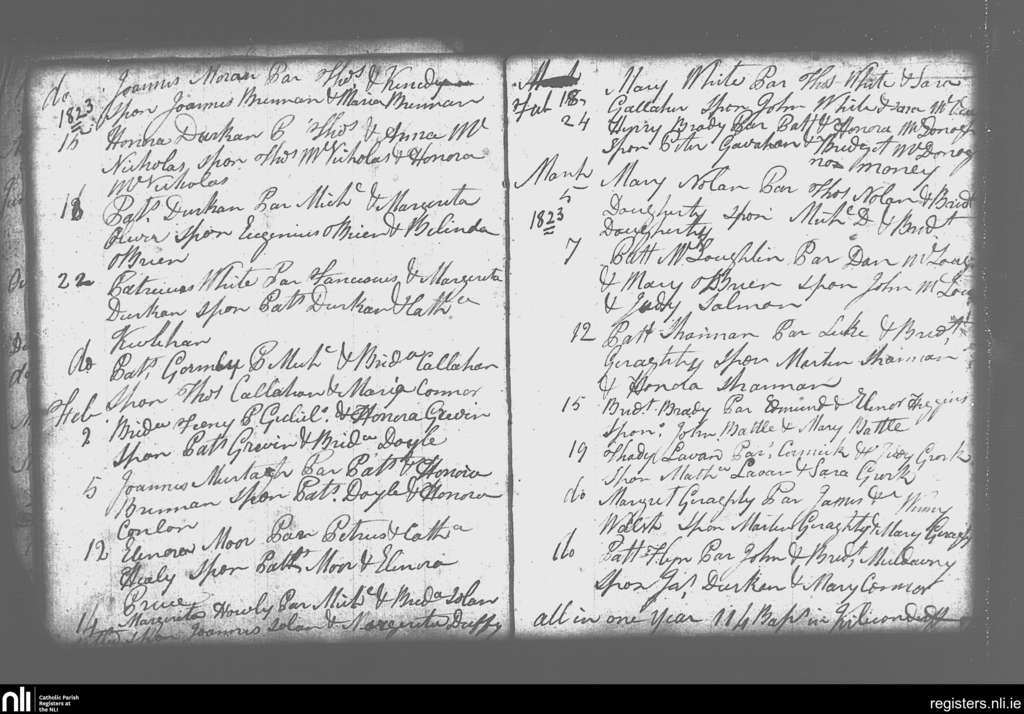 do Joannis Moran Par Thos & Kunedy
1823 Spon Joannis Brennan & Maria Brennan
15 Honora Durkan P Thos & Anna Mc
Nicholas spon Thos McNicholas & Honora
McNicholas
18 Patt. Durkan Par Michl & Margerita
spon Eugenius OBrien & Belinda
OBrien
22 Patricius White Par Francisius & Margerita
Durkan spon Patt Durkan & Cath a
do Patt. Gormley P Michl & Brida Callahan
Feb Spon Thos Callahan & Maria Connor
2 Brida Feeny P Guliel. & Honora Grevin
Spon Patt Grevin & Brida Doyle
5 Joannis Murtagh Par Patt & Honora
Brennan spon Patt. Doyle & Honora
Conlon
12 Elenora Moor Par Petrus & Cath a
Healy Spon Patt Moor & Elenora
Price
14 Margerita Howly Par Michl & Brida Solan
Spon Joannis Solan & Margerita Duffy
Feb 18 Mary White Par Thos White & Sara
Gallaher spon John White & Sara
24 Henry Brady Par Patt & Honora McDonogh
Spon Peter Gavahan & Bridget McDonogh
no money
March 5 Mary Nolan Par Thos Nolan & Bridt
1823 Dougherty spon Michl D & Bridt
Dougherty
7 Patt McLoughlin Par Dan McLoug
& Mary OBrien spon John McLou
& Judy Salmon
12 Patt Shannan Par Luke & Bridt
Geraghty spon Martin Shannan
& Honola Shannan
15 Bridt Brady Par Edmund & Elenor Higgins
Spon. John Battle & Mary Battle
19 Thady Lavan Par. Cormick & Judy Grork
Spon Mathw Lavan & Sara Grork
do Margret Geraghty Par James & Winny
Walsh spon Martin Geraghty & Mary Geraghty
do Patt Flyn Par John & Bridt. Muldowny
spon Jas. Durkan & Mary Connor
all in one Year 114 Baps in Kilconduff
nli Catholic Parish
Registers at
the NLI
registers.nli.ie